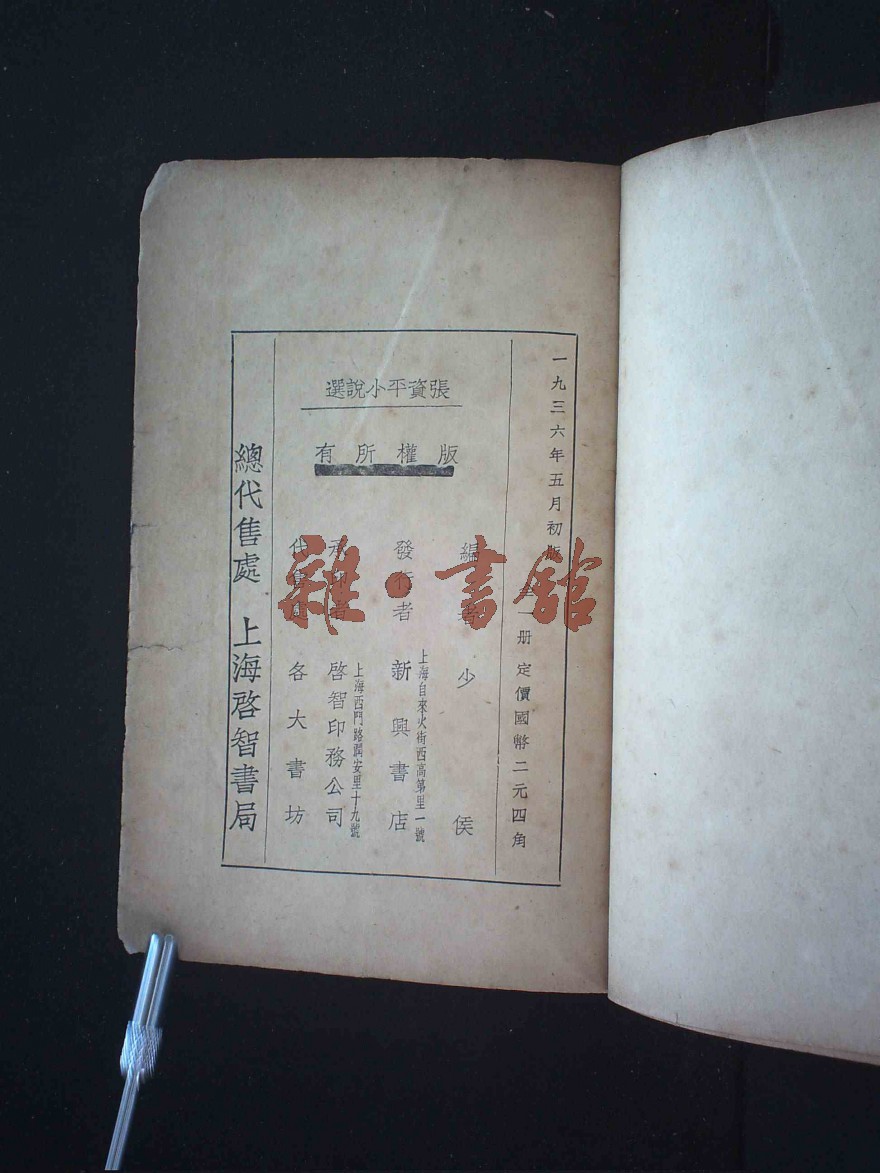 一九三六年五月初版
一冊定價國幣二元四角
張資平小說選
版權所有
編者 少侯
發行者 新興書店
上海自來火街西高第里一號
承印者 啓智印務公司
上海西門路潤安里十九號
代售處 各大書坊
總代售處 上海啓智書局
雜·書館